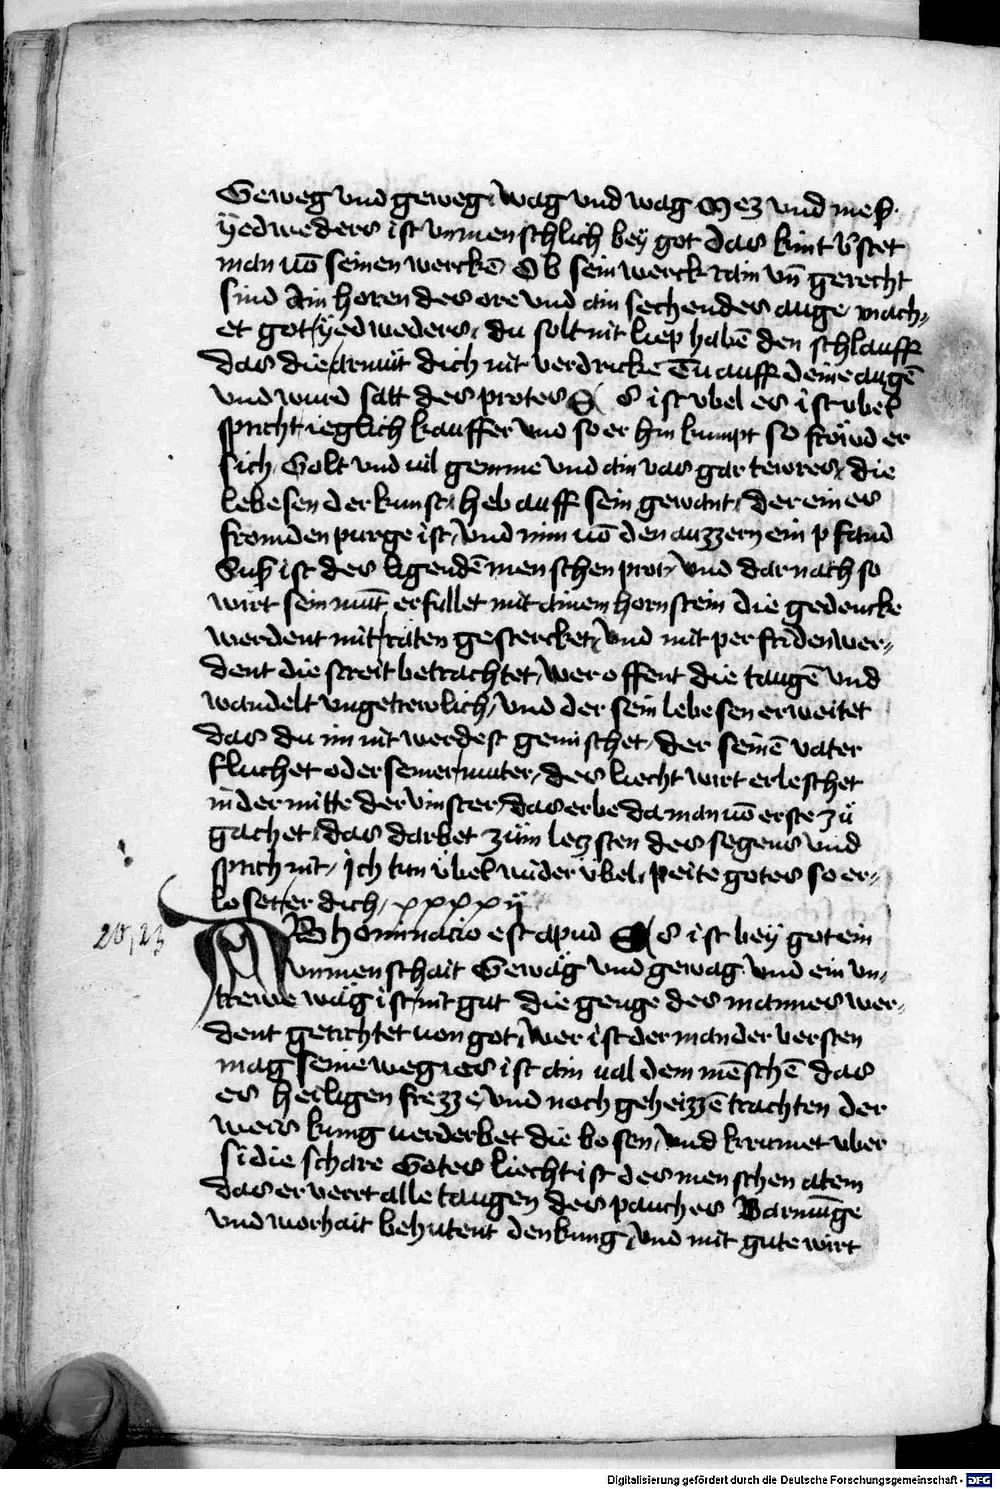 Geweg vnd geweg wag vnd wag Mez vnd meß.
yedweders ist vnmenschlich bey got das kint v̾stet
man vō seinen werckē Ob sein werck rain vn̄ gerecht
sind Ain horen des ore vnd ain sechendes auge mach„
et got yedweders, du solt nit liep habē den schlauff
das die armüt dich nit verdricke Tu auff deine augē
vnd wird satt des protes Es ist vbel es ist vbel
spricht ieglich kauffer vnd so er hin kumpt so fröwd er
sich, Golt vnd vil gemme vnd ain vas gar tewres, die
lebesen der kunst, heb auff sein gewant, der eines
fromden purge ist, vnd nim vō den auzzern ein pfand
Suß ist des ligendē menschen prot, vnd darnach so
wirt sein mūt erfullet mit ainem hornstein die gedencke
werdent mit räten gestercket, vnd mit per friden wer„
dent die streit betrachtet, wer offent die taugē vnd
wandelt vngetrewlich, vnd der sein lebesen erweitet
das du im nit werdest gemischet, der seinē vater
fluchet oder seiner muter, des liecht wirt erleschet
in der mitte der vinster, das erbe da man vō erste zü
gachet, das darbet züm leczsten des segens vnd
sprich nit, Ich tun übel wider vbel, peite gotes so er„
loset er dich, xxxxxij
ABhominacio est apud Es ist bey got ein
20,23
vnmenschait Gewäg vnd gewag vnd ein vn„
trewe wäg ist nit gut die genge des mannes wer„
dent gerichtet von got, wer ist der man der versten
mag seine weg, es ist ain val dem mēschē das
er heiligen frezze, vnd noch geheizzē trachten der
weis kunig verderbet die bosen, vnd krumet vber
si die schare Gotes liecht ist des menschen atem
das er verrt alle taugen des pauches Barmūge
vnd worhait behutent den kung, vnd mit gute wirt
Digitalisierung gefördert durch die Deutsche Forschungsgemeinschaft - DFG